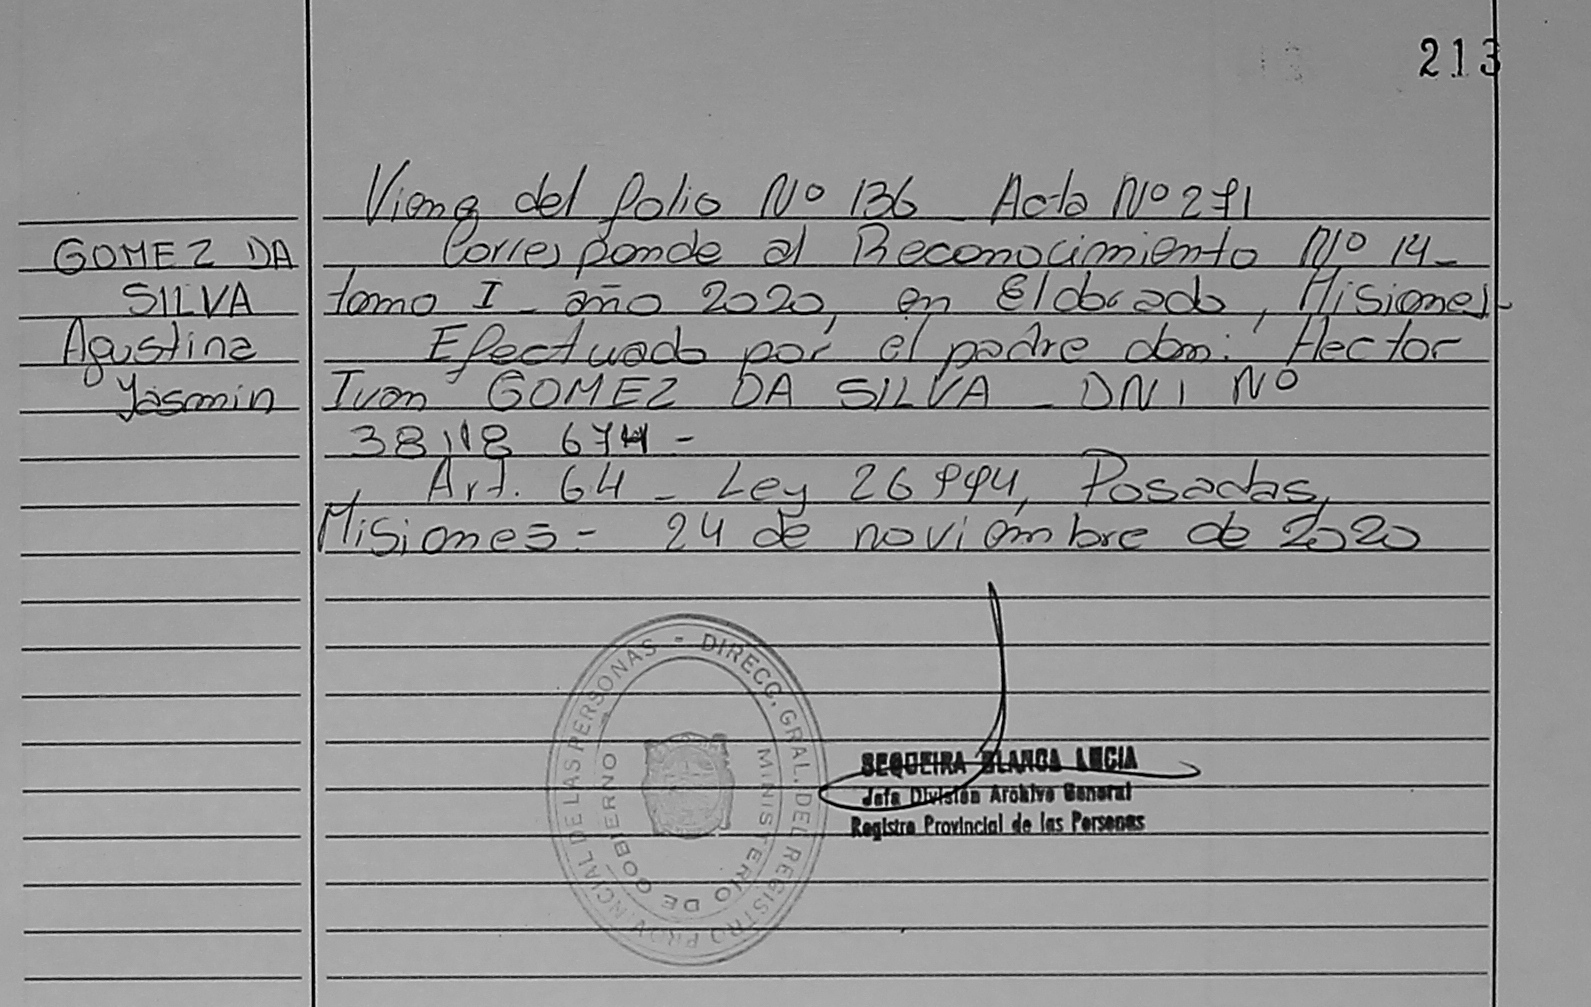 213
Viene del folio Nº 136 - Acta Nº 271
GOMEZ DA
SILVA
Agustina
Yasmin
Corresponde al Reconocimiento Nº 14 -
tomo I - año 2020, en Eldorado, Misiones -
Efectuado por el padre don: Hector
Ivan GOMEZ DA SILVA - DNI Nº
38.118 674 -
Art. 64 - Ley 26994, Posadas,
Misiones - 24 de noviembre de 2020
DIRECC. GRAL. DEL REGISTRO PROVINCIAL DE LAS PERSONAS -
MINISTERIO DE GOBIERNO
SEQUEIRA BLANCA LUCIA
Jefa División Archivo General
Registro Provincial de las Personas